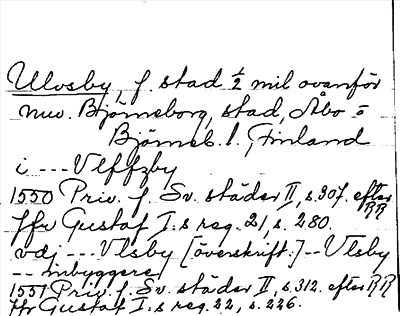 Ulvsby, f. stad ½ mil ovanför
nuv. Björneborg, stad, Åbo o
Björneb. l. Finland
i --- Vlffzby
1550 Priv. f. Sv. städer II, s. 307. efter RR
Jfr Gustaf I:s reg. 21, s. 280.
vdj --- Vlsby [överskrift:] -- Vlsby
-- inbyggere
1551 Priv. f. Sv. städer II, s. 312. efter RR
Jfr Gustaf I:s reg. 22, s. 226.